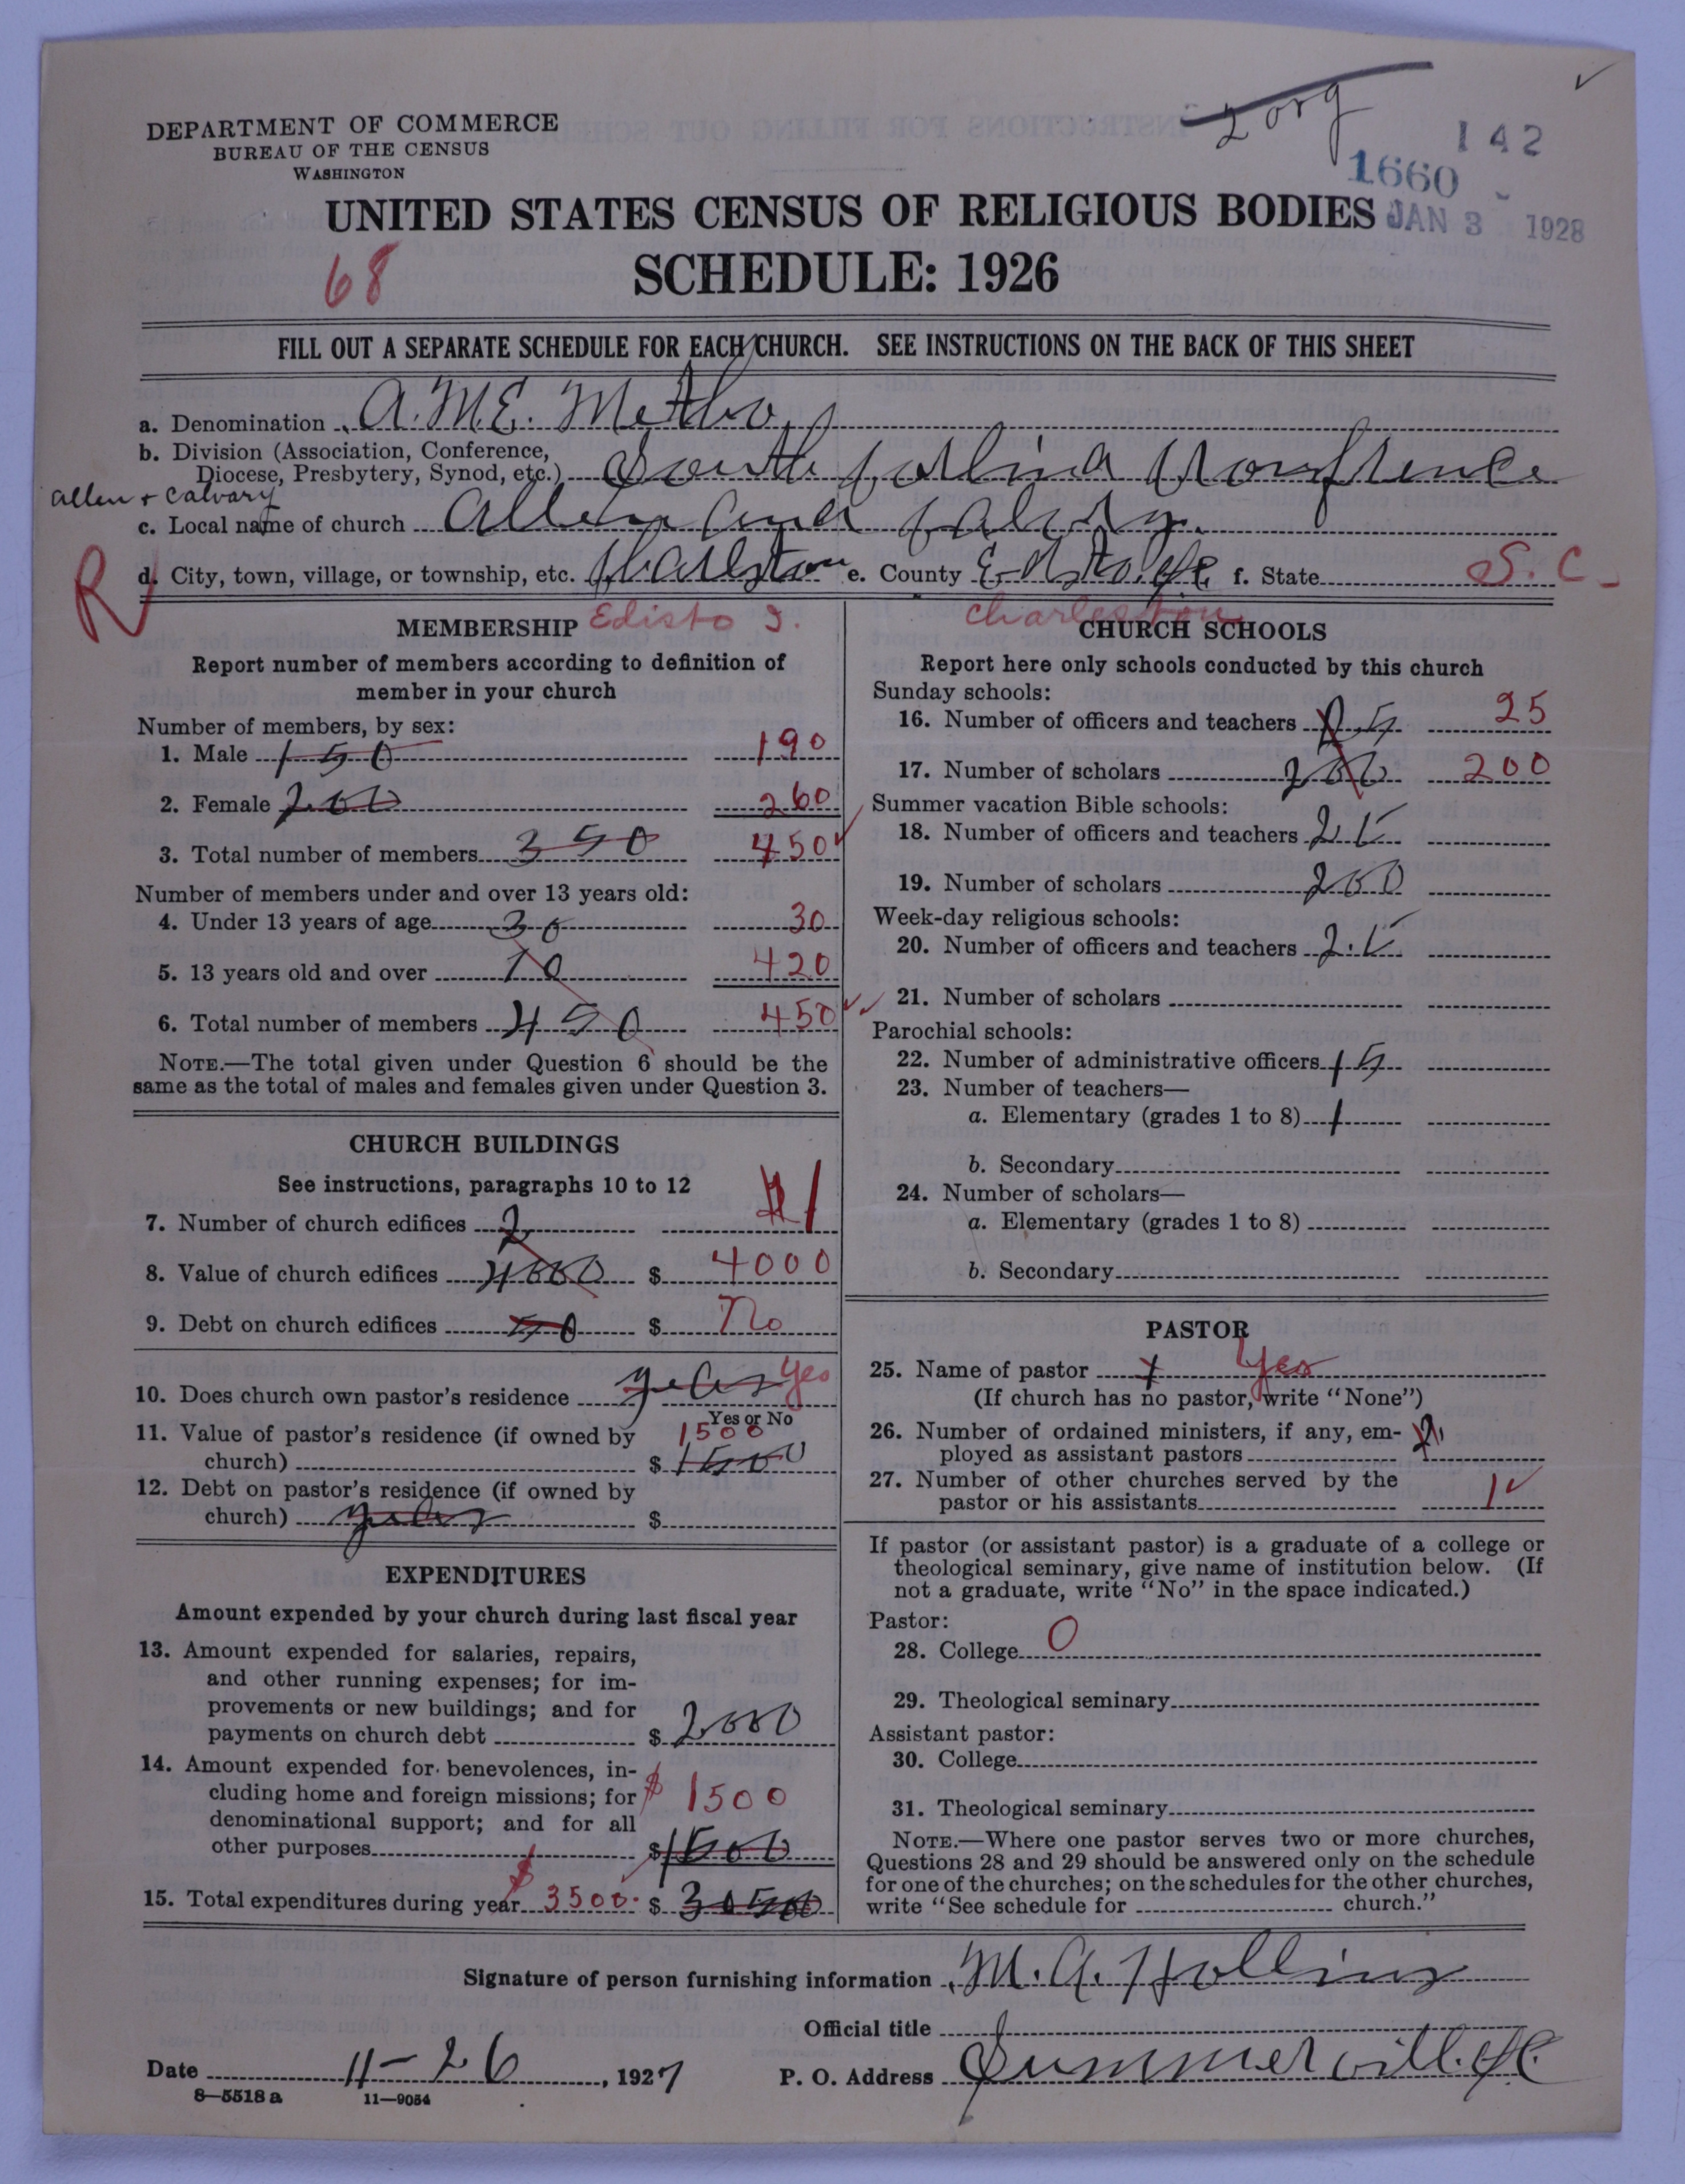 2 org
142
1660
JAN 3 1928
DEPARTMENT OF COMMERCE
BUREAU OF THE CENSUS
WASHINGTON
UNITED STATES CENSUS OF RELIGIOUS BODIES
68
SCHEDULE: 1926
FILL OUT A SEPARATE SCHEDULE FOR EACH CHURCH. SEE INSTRUCTIONS ON THE BACK OF THIS SHEET
a. Denomination A.M.E. Metho
b. Division (Association, Conference,
Diocese, Presbytery, Synod, etc.) South
allen + calvary
c. Local name of church Allen and
R
d. City, town, village, or township, etc. e. County f. State S. C.
Edisto I. Charleston
MEMBERSHIP
Report number of members according to definition of
member in your church
Number of members, by sex:
1. Male 150 190
2. Female 200 260
3. Total number of members 350 450
Number of members under and over 13 years old:
4. Under 13 years of age 30 30
5. 13 years old and over 10 420
6. Total number of members 450 450
NOTE.—The total given under Question 6 should be the
same as the total of males and females given under Question 3.
CHURCH BUILDINGS
See instructions, paragraphs 10 to 12
7. Number of church edifices 2 1
8. Value of church edifices 4000 $ 4000
9. Debt on church edifices 50 $ No
10. Does church own pastor's residence Yes
Yes or No
11. Value of pastor's residence (if owned by 1500
church) $ 1500
12. Debt on pastor's residence (if owned by
church) $
EXPENDITURES
Amount expended by your church during last fiscal year
13. Amount expended for salaries, repairs,
and other running expenses; for im-
provements or new buildings; and for
payments on church debt $ 2000
14. Amount expended for benevolences, in-
cluding home and foreign missions; for $ 1500
denominational support; and for all
other purposes $ 1500
15. Total expenditures during year $ 3500. $
CHURCH SCHOOLS
Report here only schools conducted by this church
Sunday schools:
16. Number of officers and teachers 25
17. Number of scholars 200 200
Summer vacation Bible schools:
18. Number of officers and teachers
19. Number of scholars 200
Week-day religious schools:
20. Number of officers and teachers
21. Number of scholars
Parochial schools:
22. Number of administrative officers 15
23. Number of teachers—
a. Elementary (grades 1 to 8) 1
b. Secondary
24. Number of scholars—
a. Elementary (grades 1 to 8)
b. Secondary
PASTOR
25. Name of pastor Yes
(If church has no pastor, write "None")
26. Number of ordained ministers, if any, em-
ployed as assistant pastors
27. Number of other churches served by the
pastor or his assistants 1
If pastor (or assistant pastor) is a graduate of a college or
theological seminary, give name of institution below. (If
not a graduate, write "No" in the space indicated.)
Pastor:
28. College O
29. Theological seminary
Assistant pastor:
30. College
31. Theological seminary
NOTE.—Where one pastor serves two or more churches,
Questions 28 and 29 should be answered only on the schedule
for one of the churches; on the schedules for the other churches,
write "See schedule for church."
Signature of person furnishing information M. A. Hollins
Official title
Date 11-26, 1927 P. O. Address Summerville SC.
8—5518 a 11—9054